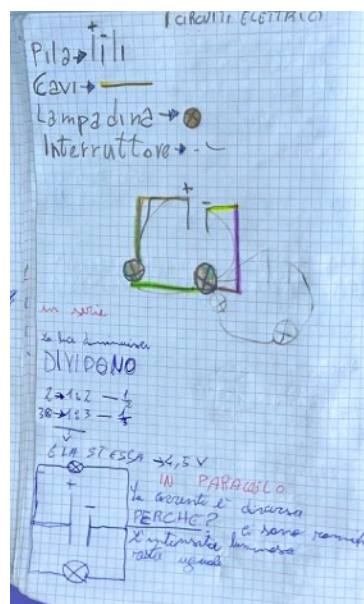 I CIRCUITI ELETTRICI
Pila →
Cavi →
Lampadina →
Interruttore →
+ -
in serie
La luce
DIVIDONO
2→1:2 — 1/2
3→1:3 — 1/3
V È LA STESSA → 4,5 V
IN PARALLELO
+ -
la corrente è diversa
PERCHÉ? ci sono
l'intensità luminosa
resta uguale